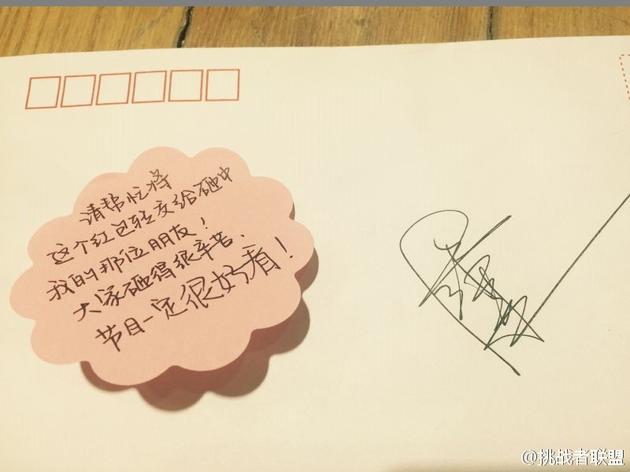 请帮忙将
这个红包转交给砸中
我的那位朋友！
大家砸得很辛苦、
节目一定很好看！
@挑战者联盟